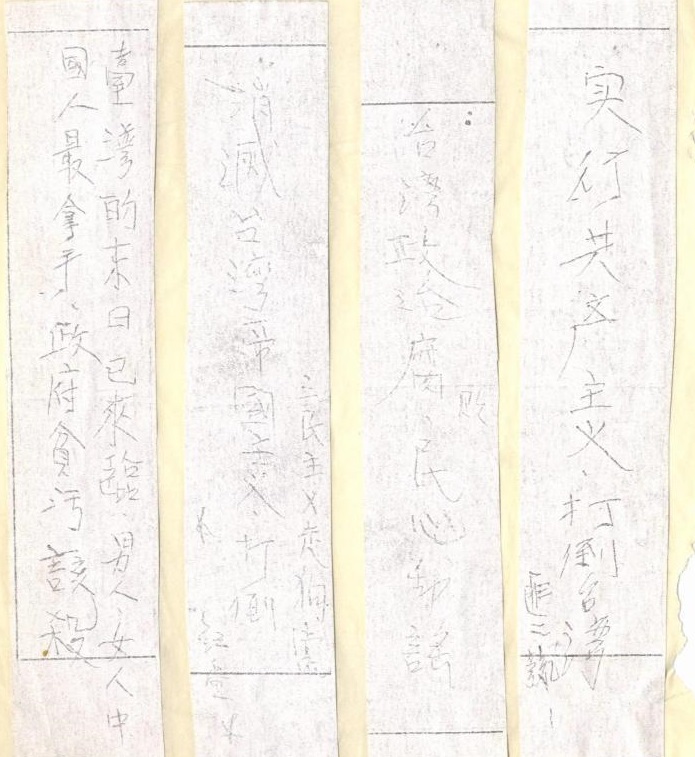 实行共产主义、打倒台湾
匪二號
台湾政治腐敗民心動謡
消滅台灣帝國主义、打倒
三民主义走狗
臺灣的末日已來臨、男人、女人中
國人最拿手、政府貪污該殺